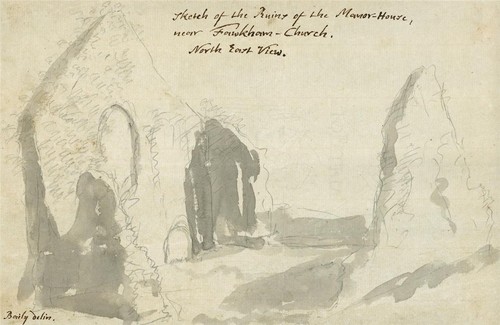 Sketch of the Ruins of the Manor-House,
near Fawkham-Church.
North East View.
Baily delin.